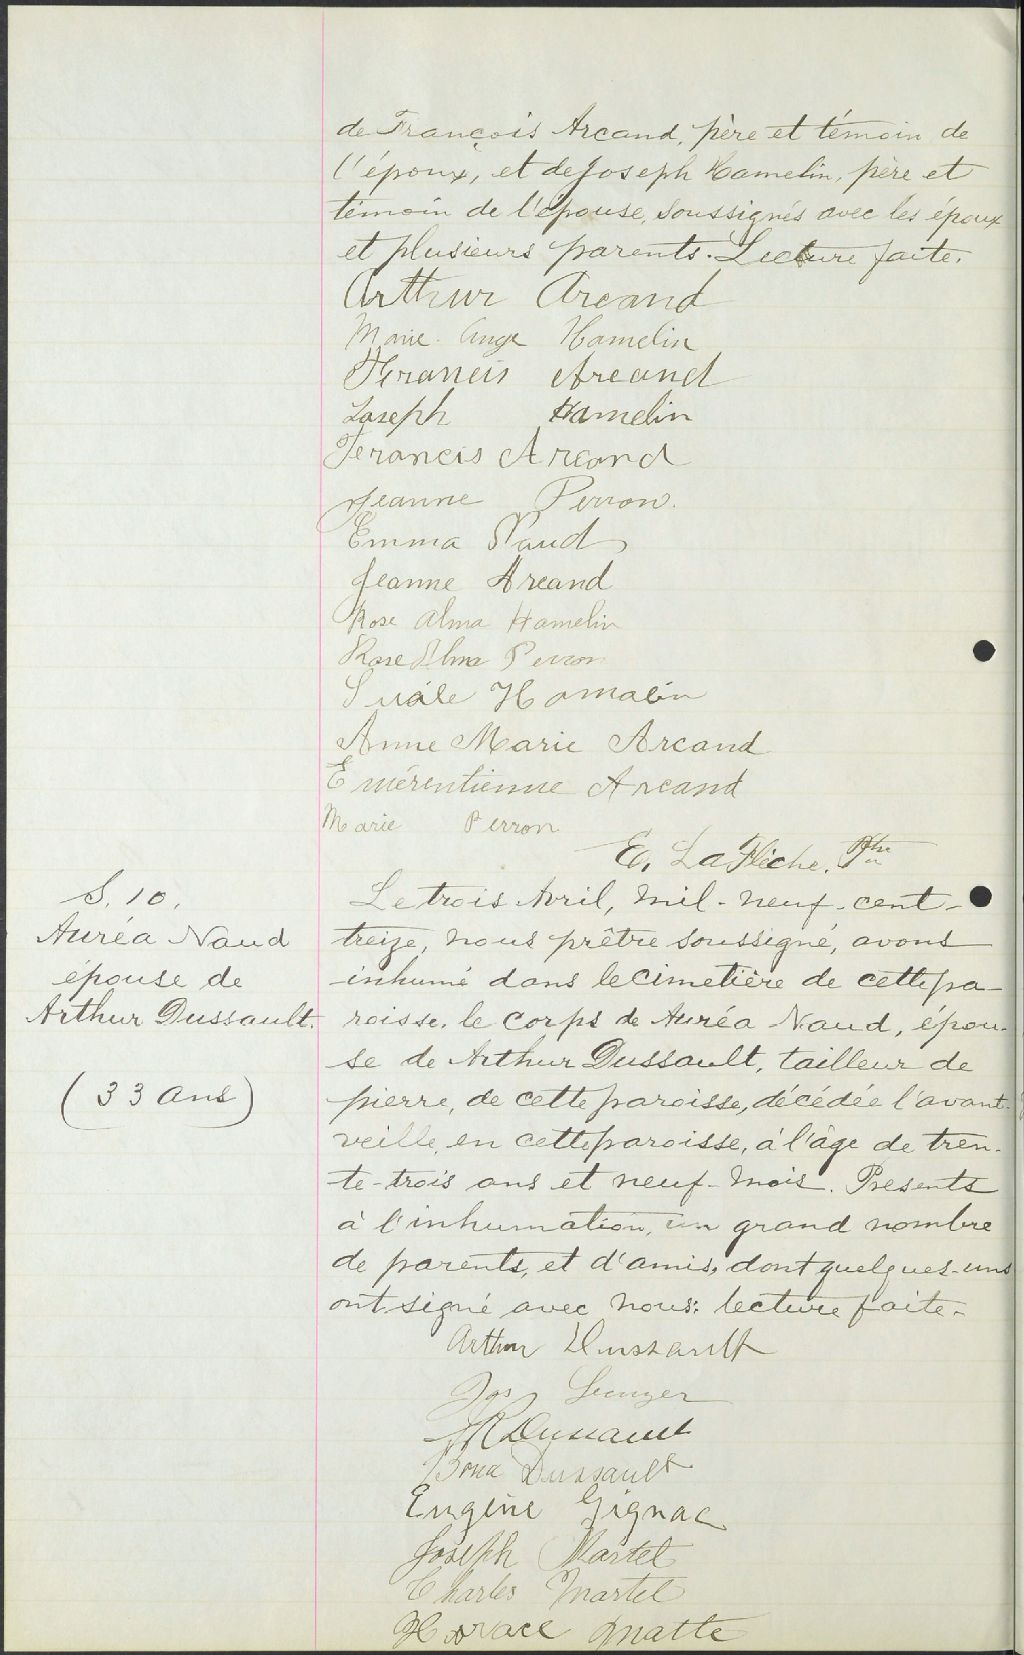 de François Arcand, père et témoin de
l'époux, et de Joseph Hamelin, père et
témoin de l'épouse, soussignés avec les époux
et plusieurs parents. Lecture faite.
Arthur Arcand
Marie Ange Hamelin
Francis Arcand
Joseph Hamelin
Francis Arcand
Jeanne Perron.
Emma Naud
Jeanne Arcand
Rose Alma Hamelin
Rose Alma Perron
Hamelin
Anne Marie Arcand
Emérentienne Arcand
Marie Perron
E. LaFlèche, Ptre
S. 10.
Auréa Naud
épouse de
Arthur Dussault.
(33 ans)
Le trois Avril, mil-neuf-cent-
treize, nous prêtre soussigné, avons
inhumé dans le cimetière de cette pa-
roisse, le corps de Auréa Naud, épou-
se de Arthur Dussault, tailleur de
pierre, de cette paroisse, décédée l'avant-
veille, en cette paroisse, à l'âge de tren-
te-trois ans et neuf-mois. Présents
à l'inhumation, un grand nombre
de parents, et d'amis, dont quelques-uns
ont signé avec nous: lecture faite.
Arthur Dussault
Jos
Dussault
Bona Dussault
Eugène Gignac
Joseph Martel
Charles Martel
Horace Matte